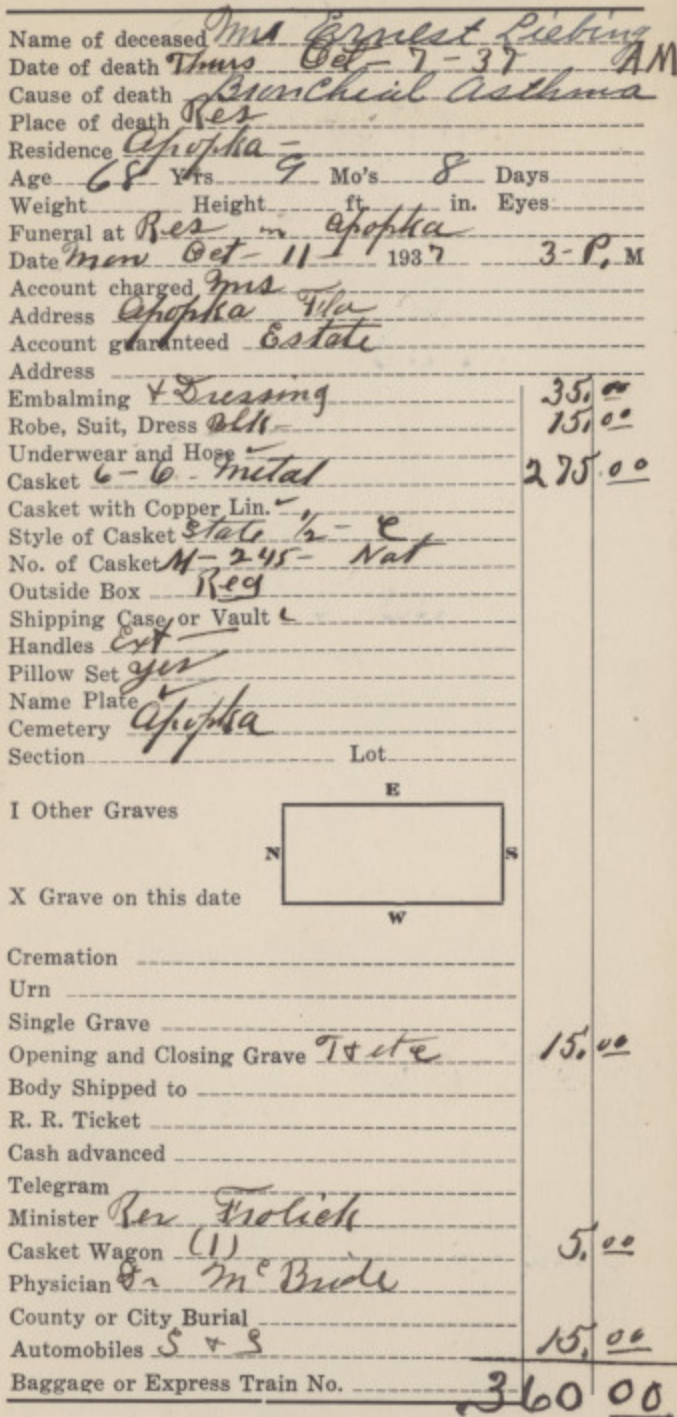 Name of deceased Mrs Ernest Liebing
Date of death Thurs Oct - 7 - 37 AM
Cause of death Bronchial Asthma
Place of death Res
Residence Apopka -
Age 68 Yrs 9 Mo's 8 Days
Weight Height ft. in. Eyes
Funeral at Res in Apopka
Date Mon Oct - 11 - 1937 3 - P. M
Account charged Mrs
Address Apopka Fla
Account guaranteed Estate
Address
Embalming & Dressing 35.00
Robe, Suit, Dress Blk - 15.00
Underwear and Hose ✓
Casket 6 - 6 - Metal 275.00
Casket with Copper Lin. ✓
Style of Casket State 1/2 - C
No. of Casket M - 245 - Nat
Outside Box Reg
Shipping Case or Vault
Handles Ext -
Pillow Set yes
Name Plate ✓
Cemetery Apopka
Section Lot
E
I Other Graves
N S
X Grave on this date
W
Cremation
Urn
Single Grave
Opening and Closing Grave 15.00
Body Shipped to
R. R. Ticket
Cash advanced
Telegram
Minister Rev Frolick
Casket Wagon (1) 5.00
Physician Dr McBride
County or City Burial
Automobiles S & S 15.00
Baggage or Express Train No. 360 00